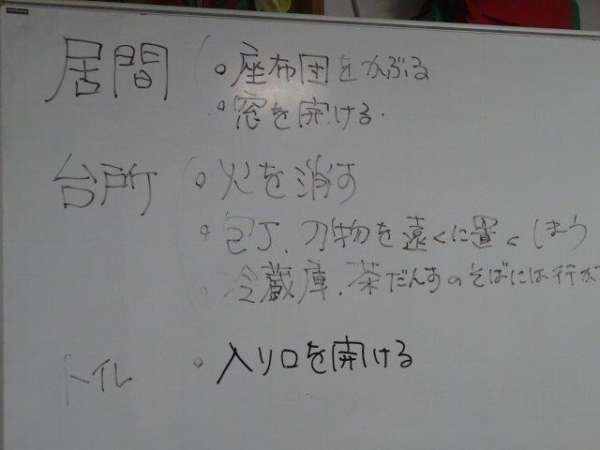 居間 ・座布団をかぶる
・窓を開ける.
台所 ・火を消す
・包丁、刀物を遠くに置く しまう
・冷蔵庫、茶だんすのそばには行か
トイレ ・入り口を開ける